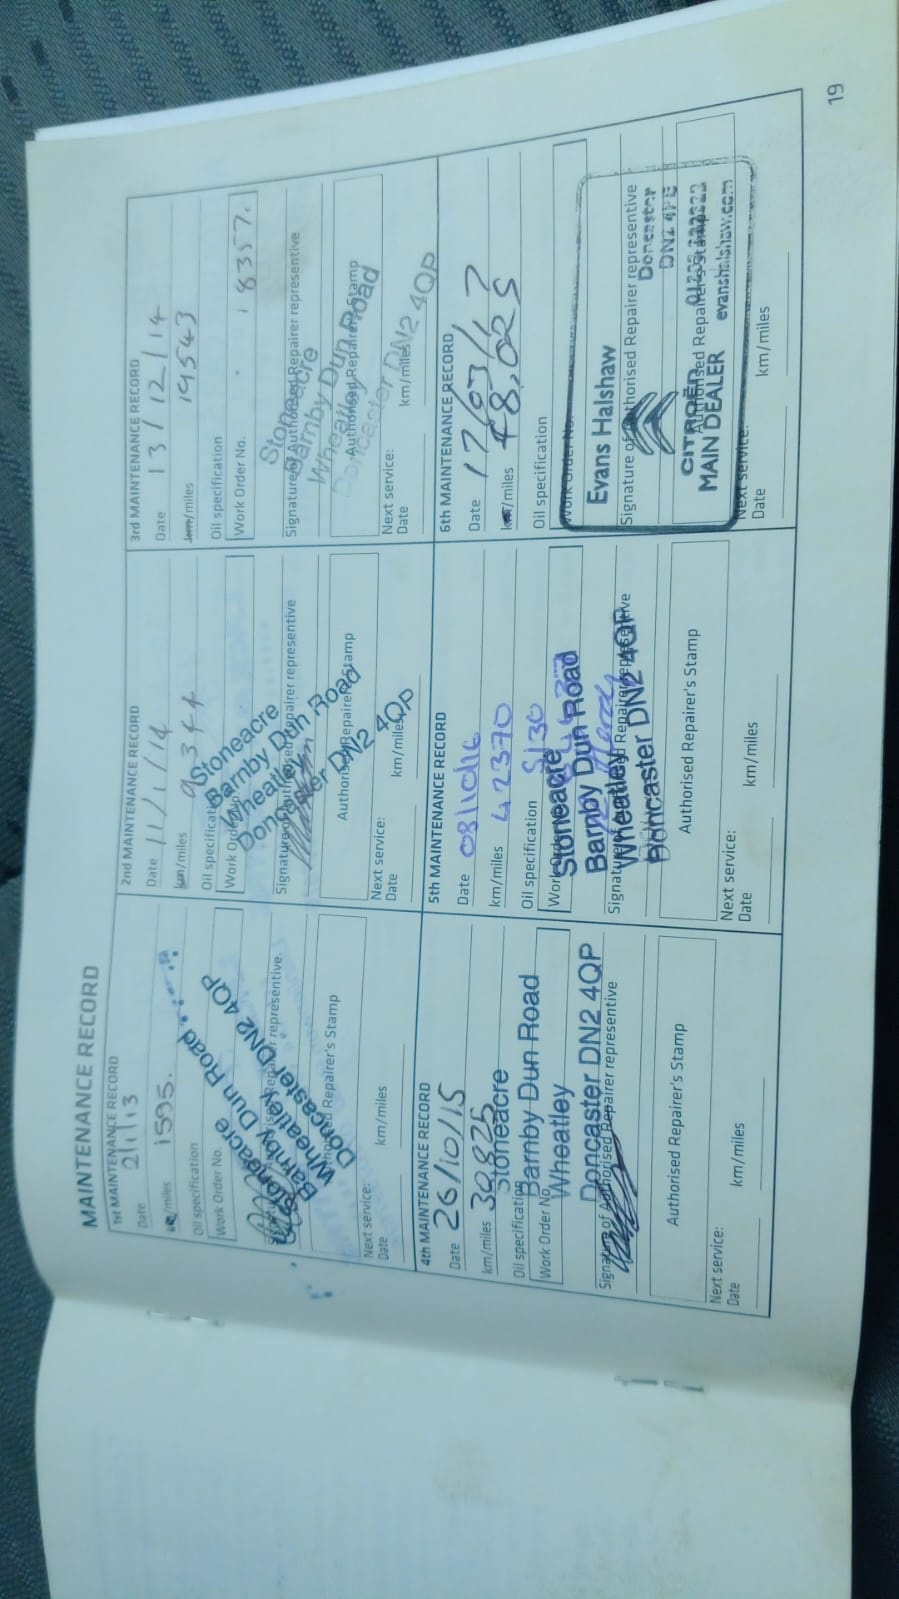 MAINTENANCE RECORD
1st MAINTENANCE RECORD
Date 2/1/13
km/miles 1595.
Oil specification
Work Order No.
Stoneacre
Barnby Dun Road
Wheatley
Doncaster DN2 4QP
Signature of Authorised Repairer representative
Authorised Repairer's Stamp
Next service:
Date
km/miles
2nd MAINTENANCE RECORD
Date 11/1/14
km/miles 9,344
Oil specification
Work Order No.
Stoneacre
Barnby Dun Road
Wheatley
Doncaster DN2 4QP
Signature of Authorised Repairer representative
Authorised Repairer's Stamp
Next service:
Date
km/miles
3rd MAINTENANCE RECORD
Date 13/12/14
km/miles 19543
Oil specification
Work Order No. 18357.
Stoneacre
Barnby Dun Road
Wheatley
Doncaster DN2 4QP
Signature of Authorised Repairer representative
Authorised Repairer's Stamp
Next service:
Date
km/miles
4th MAINTENANCE RECORD
Date 26/10/15
km/miles 30825
Oil specification
Work Order No.
Stoneacre
Barnby Dun Road
Wheatley
Doncaster DN2 4QP
Signature of Authorised Repairer representative
Authorised Repairer's Stamp
Next service:
Date
km/miles
5th MAINTENANCE RECORD
Date 08/10/16
km/miles 42370
Oil specification 5/30
Work Order No.
Stoneacre
Barnby Dun Road
Wheatley
Doncaster DN2 4QP
Signature of Authorised Repairer representative
Authorised Repairer's Stamp
Next service:
Date
km/miles
6th MAINTENANCE RECORD
Date 17/03/17
km/miles 48,025
Oil specification
Work Order No.
Evans Halshaw
Signature of Authorised Repairer representative
Doncaster
DN2
CITROËN
MAIN DEALER
evanshalshaw.com
Authorised Repairer's Stamp
Next service:
Date
km/miles
19